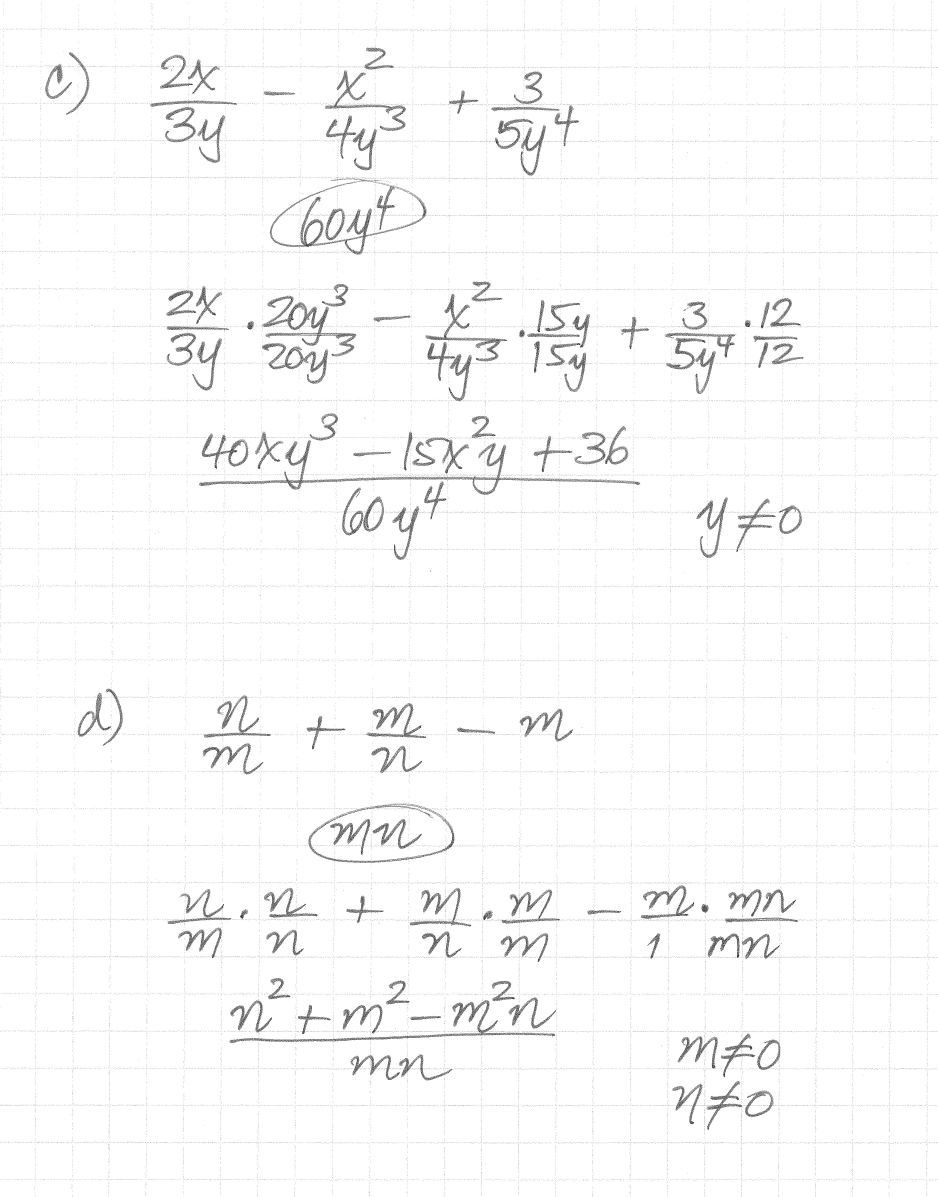 c) 2x/3y − x²/4y³ + 3/5y⁴
60y⁴
2x/3y · 20y³/20y³ − x²/4y³ · 15y/15y + 3/5y⁴ · 12/12
(40xy³ − 15x²y + 36)/60y⁴ y ≠ 0
d) n/m + m/n − m
mn
n/m · n/n + m/n · m/m − m/1 · mn/mn
(n² + m² − m²n)/mn m ≠ 0
n ≠ 0